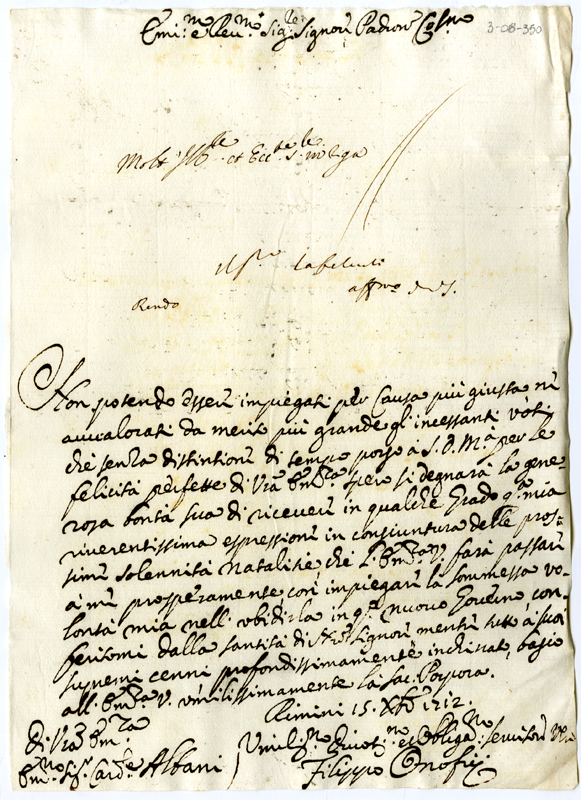 Emi:mo e Rev:mo Sig:re Signore Padron Col:mo
3-08-350
Molt' Ill:re et Ecc:te S:
affmo
Rendo
Non potendo esseri impiegati per Causa più giusta ni
avvalorati da meriti più grande gl'incessanti voti
che senza distintioni di tempo porgo à S. D. M:tà per le
felicità perfette di Vra Em:za spero si degnarà la gene-
rosa bontà sua di riceveri in qualche Grado q:ta mia
riverentissima espressioni in congiuntura delle pros-
simi solennità natalitie che l'Em:za V. farà passari
à mi prosperamente così impiegari la sommessa vo-
lontà mia nell'ubidirla in q:to nuovo Governo con-
feritomi dalla santità di Nro Signori mentri tutto à suoi
supremi cenni profondissimamente inchinato, bagio
all'Em:za V. umilissimamente la Sac. Porpora.
Rimini 15. Xbre 1712.
Di Vra Em:za
Em:mo Sig:r Card:le Albani
Umil:mo Divot:mo et Obliga:mo servitore
Filippo Onofri